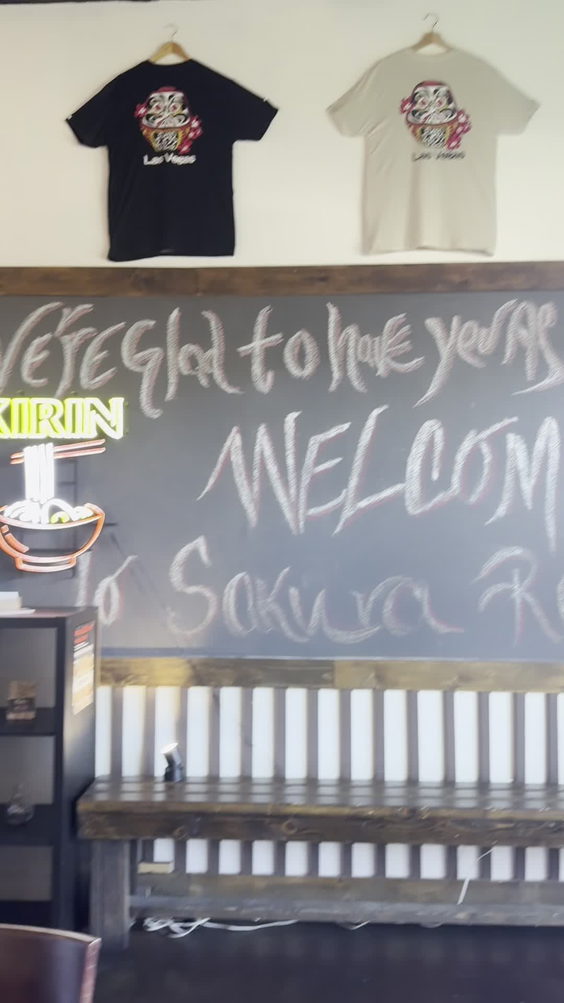 Las Vegas
Las Vegas
We're Glad to have you As
KIRIN
WELCOM
To Sakura R